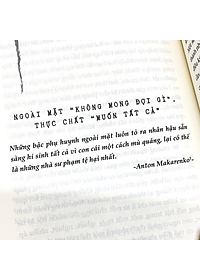 NGOÀI MẶT "KHÔNG MONG ĐỢI GÌ",
THỰC CHẤT "MUỐN TẤT CẢ"
Những bậc phụ huynh ngoài mặt luôn tỏ ra nhân hậu sẵn
sàng hi sinh tất cả vì con cái một cách mù quáng, lại có thể
là những nhà sư phạm tệ hại nhất.
-Anton Makarenko¹-